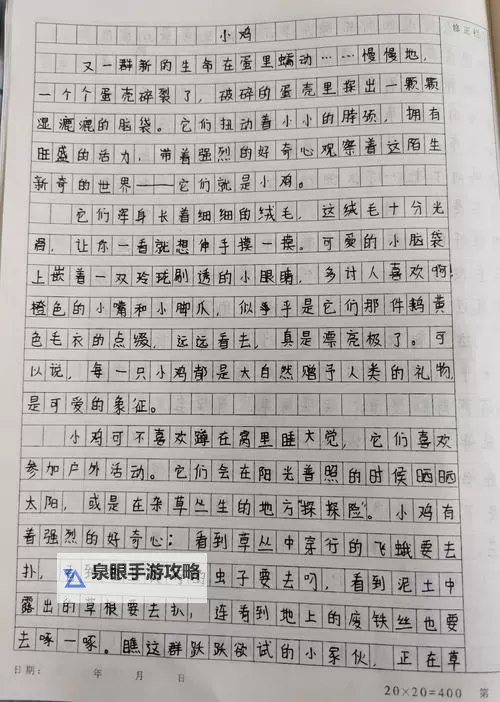 修正栏
小鸡
又一群新的生命在蛋里蠕动……慢慢地,
一个个蛋壳碎裂了,破碎的蛋壳里探出一颗颗
湿漉漉的脑袋。它们扭动着小小的脖颈,拥有
旺盛的活力,带着强烈的好奇心观察着这陌生
新奇的世界——它们就是小鸡。
它们浑身长着细细的绒毛,这绒毛十分光
滑,让你一看就想伸手摸一摸。可爱的小脑袋
上嵌着一双玲珑剔透的小眼睛,多讨人喜欢啊!
橙色的小嘴和小脚爪,似乎是它们那件鹅黄
色毛衣的点缀,远远看去,真是漂亮极了。可
以说,每一只小鸡都是大自然赠予人类的礼物,
是可爱的象征。
小鸡可不喜欢蹲在窝里睡大觉,它们喜欢
参加户外活动。它们会在阳光普照的时候晒晒
太阳,或是在杂草丛生的地方"探探险"。小鸡有
着强烈的好奇心:看到草丛中穿行的飞蛾要去
扑,的虫子要去叼,看到泥土中
泉眼手游攻略
露出的草根要去扒,连看到地上的废铁丝也要
去啄一啄。瞧这群跃跃欲试的小家伙,正在草
日期: 年 月 日
20×20=400 第